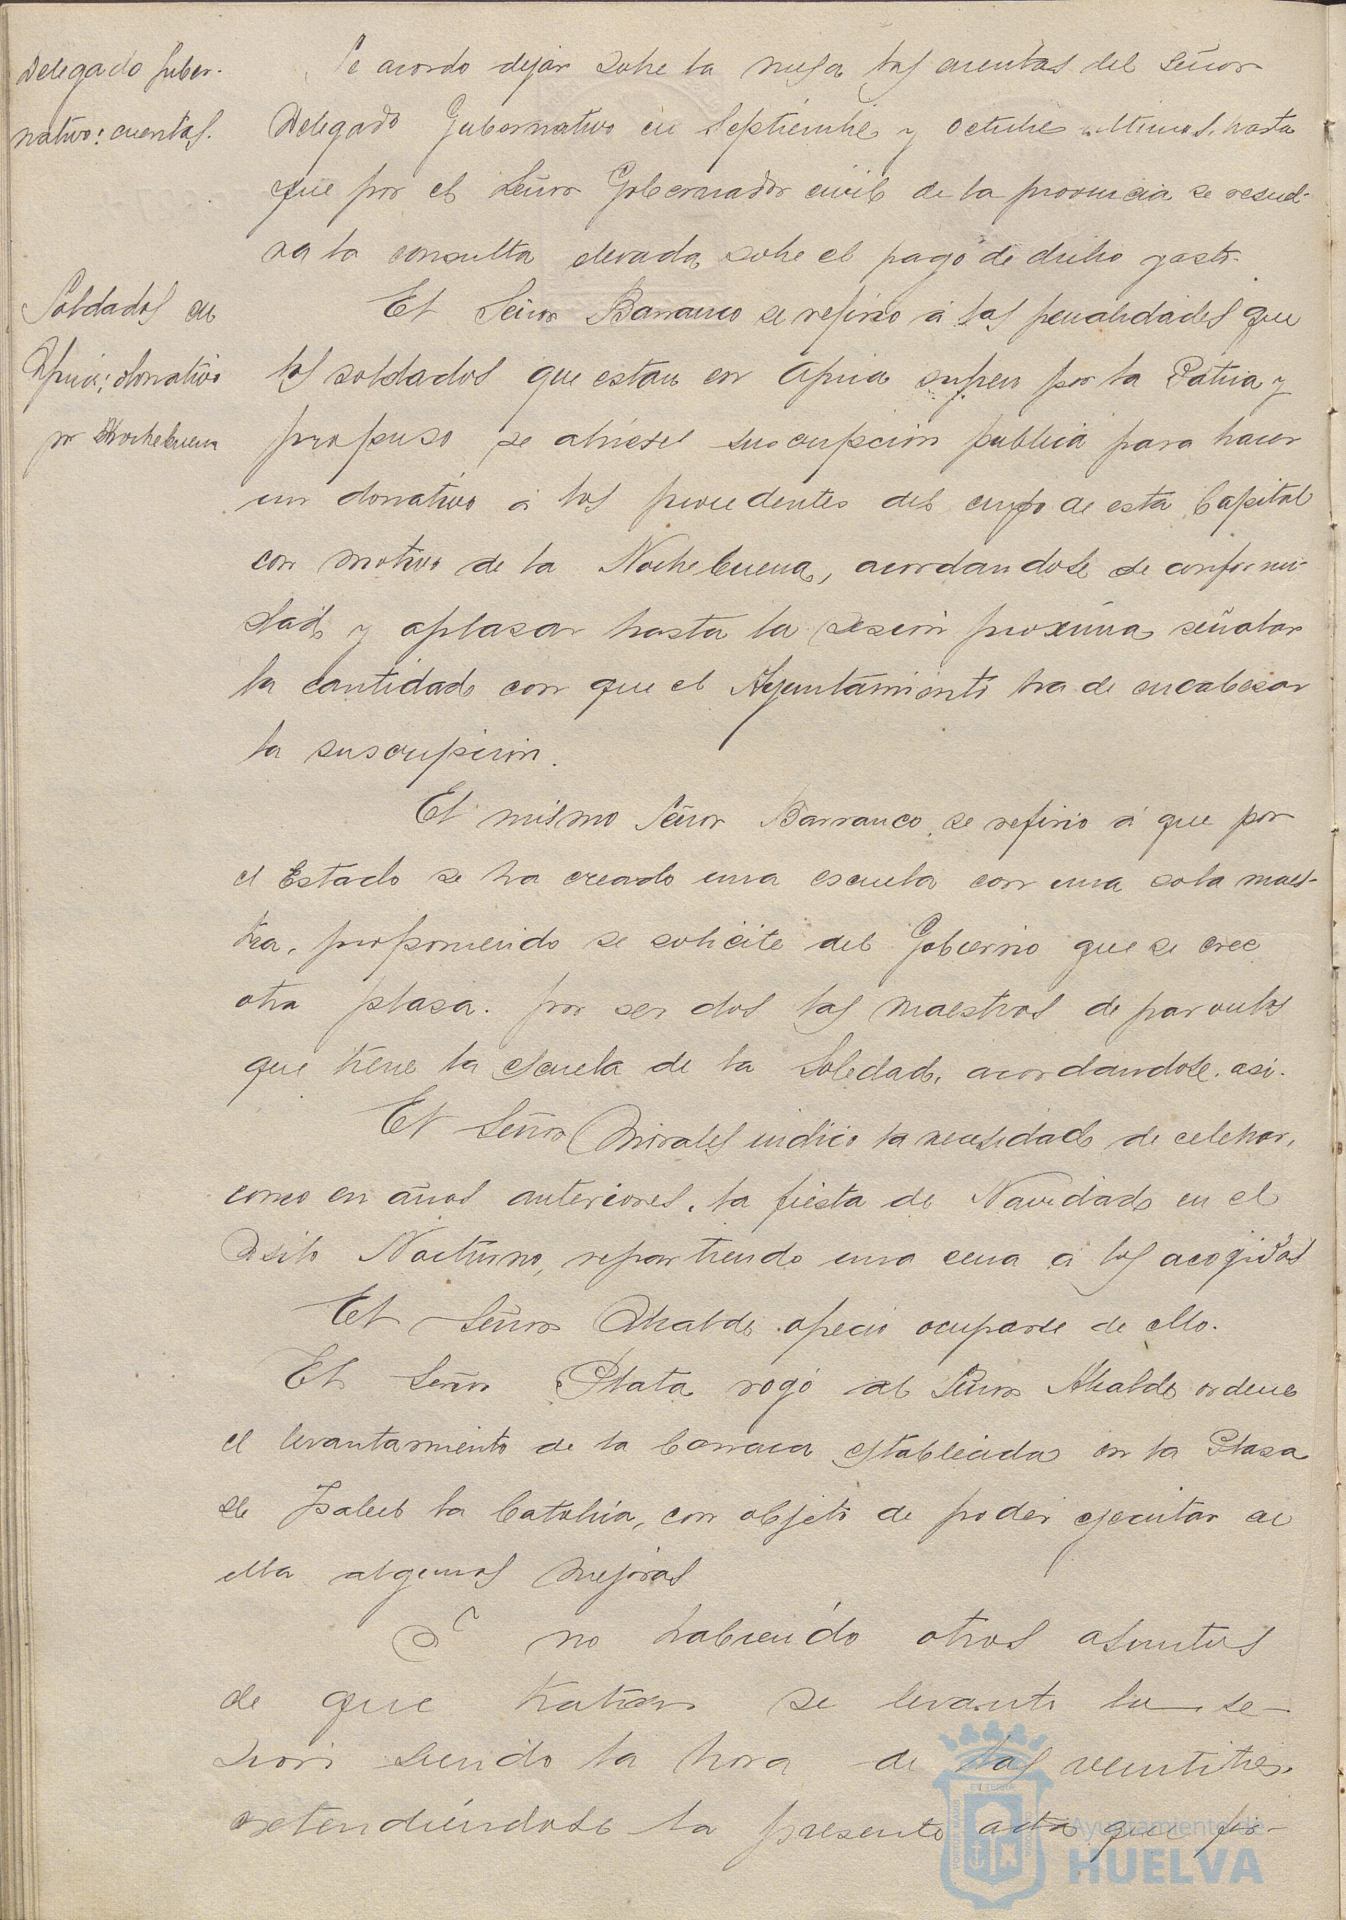 Delegado Guber-
nativo: cuentas.
Se acordo dejar sobre la mesa las cuentas del Señor
Delegado Gubernativo en Septiembre y octubre ultimos, hasta
que por el Señor Gobernador civil de la provincia se resuel-
va la consulta elevada sobre el pago de dicho gasto.
Soldados en
Africa: donativo
por Nochebuena
El Señor Barranco se refirio á las penalidades que
los soldados que estan en Africa sufren por la Patria y
propuso se abriese suscripcion publica para hacer
un donativo á los procedentes del cupo de esta Capital
con motivo de la Nochebuena, acordandose de conformi-
dad y aplasar hasta la sesion proxima señalar
la cantidad con que el Ayuntamiento ha de encabesar
la suscripcion.
El mismo Señor Barranco se refirio á que por
el Estado se ha creado una escuela con una sola maes-
tra, proponiendo se solicite del Gobierno que se cree
otra plasa por ser dos las maestras de parvulos
que tiene la escuela de la Soledad, acordandose asi.
El Señor Morales indico la necesidad de celebrar,
como en años anteriores, la fiesta de Navidad en el
Asilo Nocturno, repartiendo una cena á los acogidos
El Señor Alcalde ofrecio ocuparse de ello.
El Señor Plata rogó al Señor Alcalde ordene
el levantamiento de la barraca establecida en la Plasa
de Isabel la Catolica, con objeto de poder ejecutar en
ella algunas mejoras
Y no habiendo otros asuntos
de que tratar se levanto la se-
sion siendo la hora de las veintitres
extendiéndose la presente acta que fir-
Ayuntamiento de
HUELVA